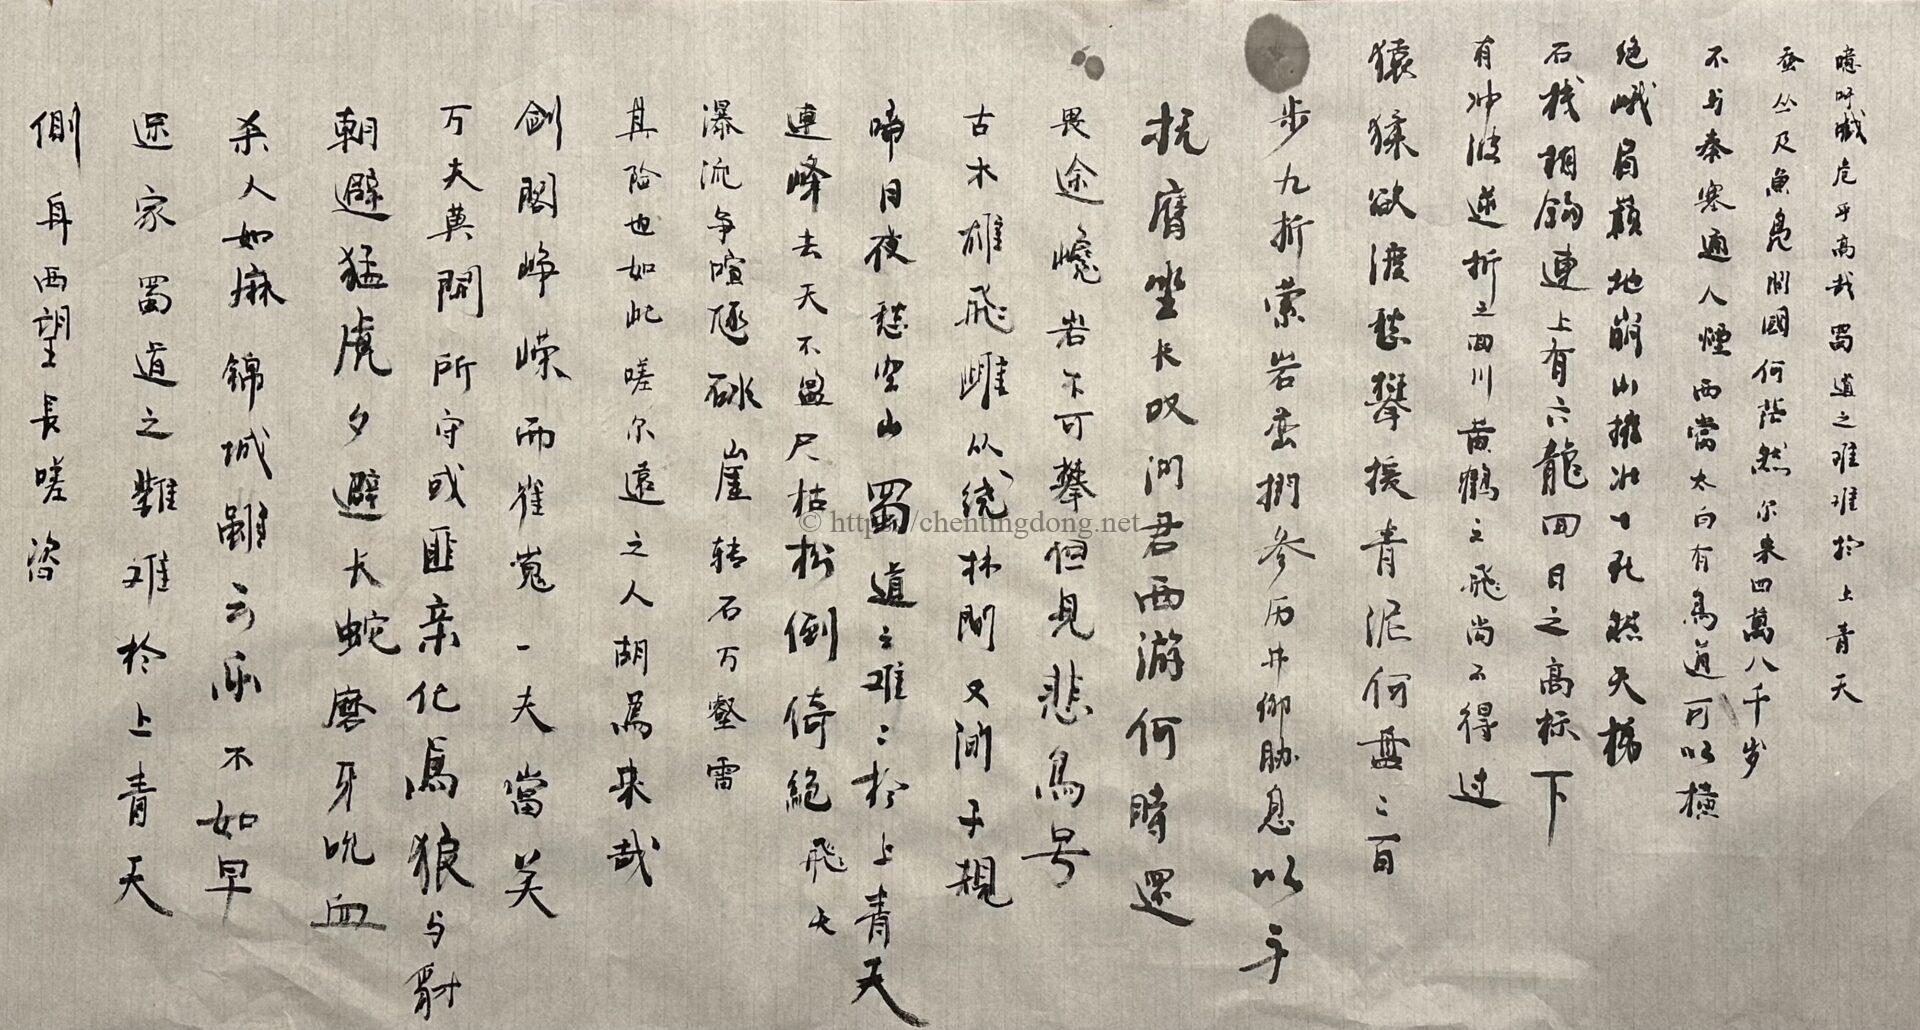 噫吁戲危乎高哉蜀道之难难於上青天
蚕丛及魚凫開國何茫然尔来四萬八千岁
不与秦塞通人煙西當太白有鳥道可以横
绝峨眉巅地崩山摧壮士死然天梯
石栈相鈎連上有六龍回日之高标下
有冲波逆折之回川黄鹤之飛尚不得过
猿猱欲渡愁攀援青泥何盘〻百
步九折萦岩峦扪参历井仰胁息以手
抚膺坐长叹问君西游何時還
畏途巉岩不可攀但見悲鳥号
古木雄飛雌从绕林間又聞子規
啼月夜愁空山蜀道之难〻於上青天
連峰去天不盈尺枯松倒倚絕飛
瀑流争喧豗砯崖转石万壑雷
其险也如此嗟尔遠之人胡爲来哉
劍閣峥嵘而崔嵬一夫當关
万夫莫開所守或匪亲化爲狼与豺
朝避猛虎夕避长蛇磨牙吮血
杀人如麻錦城雖云乐不如早
还家蜀道之難难於上青天
側身西望長嗟咨
© http://chentingdong.net